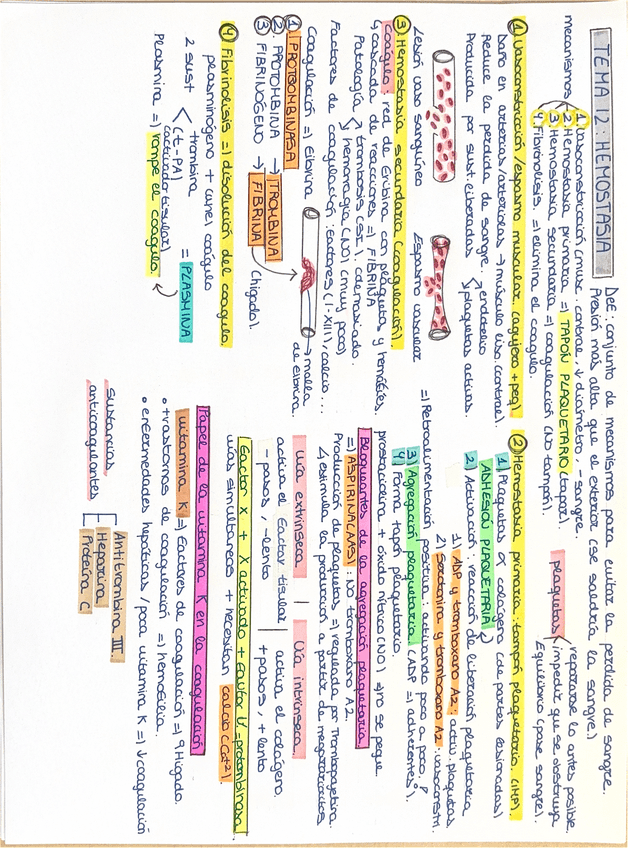 TEMA 12: HEMOSTASIA
Def: conjunto de mecanismos para evitar la perdida de sangre.
Presión más alta que el exterior (se saldría la sangre)
mecanismos
1) Vasoconstricción (musc. contrae, ↓ diámetro, - sangre.
2) Hemostasia primaria =) TAPÓN PLAQUETARIO (tapar).
3) Hemostasia secundaria =) coagulación (No tampón).
4) Fibrinólisis. =) elimina el coagulo.
plaquetas
repararse lo antes posible.
impedir que se obstruya
Equilibrio (pase sangre).
① Vasoconstricción / espasmo muscular (agujero + peq)
Daño en arterias/arteriolas → musculo liso (contrae).
Reduce la perdida de sangre.
Producida por sust. liberadas
endotelio
plaquetas activas.
Lesión vaso sanguíneo
Espasmo vascular
③ Hemostasia secundaria (coagulación).
Coágulo: red de fibrina con plaquetas y hematíes.
↳ cascada de reacciones =) FIBRINA
Patología
trombosis (SI). (demasiado.
hemorragia (NO) (muy poco)
Factores de coagulación: factores (I-XIII), calcio...
Coagulación =) Fibrina
malla de fibrina.
① PROTROMBINASA
② PROTOMBINA → TROMBINA
③ FIBRINÓGENO → FIBRINA (hígado).
④ Fibrinólisis =) disolución del coagulo.
plasminógeno + cerca coágulo
2 sust
trombina
(t-PA)
(activador tisular)
= PLASMINA
Plasmina =) rompe el coagulo.
② Hemostasia primaria: tampón plaquetario. (IMP).
1) Plaquetas al colágeno (de partes lesionadas)
ADHESIÓN PLAQUETARIA
2) Activación, reacción de liberación plaquetaria
1) ADP y tromboxano A2: activ. plaquetas
2) Serotonina y tromboxano A2: vasoconstr.
=) Retroalimentación positiva: activando poco a poco,
3) Agregación plaquetaria (ADP =) adherentes).
4) Forma tapón plaquetario.
prostaciclina + oxido nítrico (NO). =) no se pegue.
Bloqueantes de la agregación plaquetaria
=) ASPIRINA (AAS): No tromboxano A2.
Producción de plaquetas =) regulada por Trombopoyetina.
↳ estimula la producción a partir de megacariocitos
Vía extrínseca | Vía intrínseca.
activa el Factor tisular | activa el colágeno
- pasos, - lento | + pasos, + lento
Factor X → X activado + factor V = protombinasa
vías simultaneas + necesitan calcio (Ca+2).
Papel de la vitamina K en la coagulación
Vitamina K =) factores de coagulación =) Hígado.
• trastornos de coagulación =) hemofilia.
• enfermedades hepáticas / poca vitamina K =) ↓coagulación
Sustancias anticoagulantes
Antitrombina III
Heparina
Proteína C